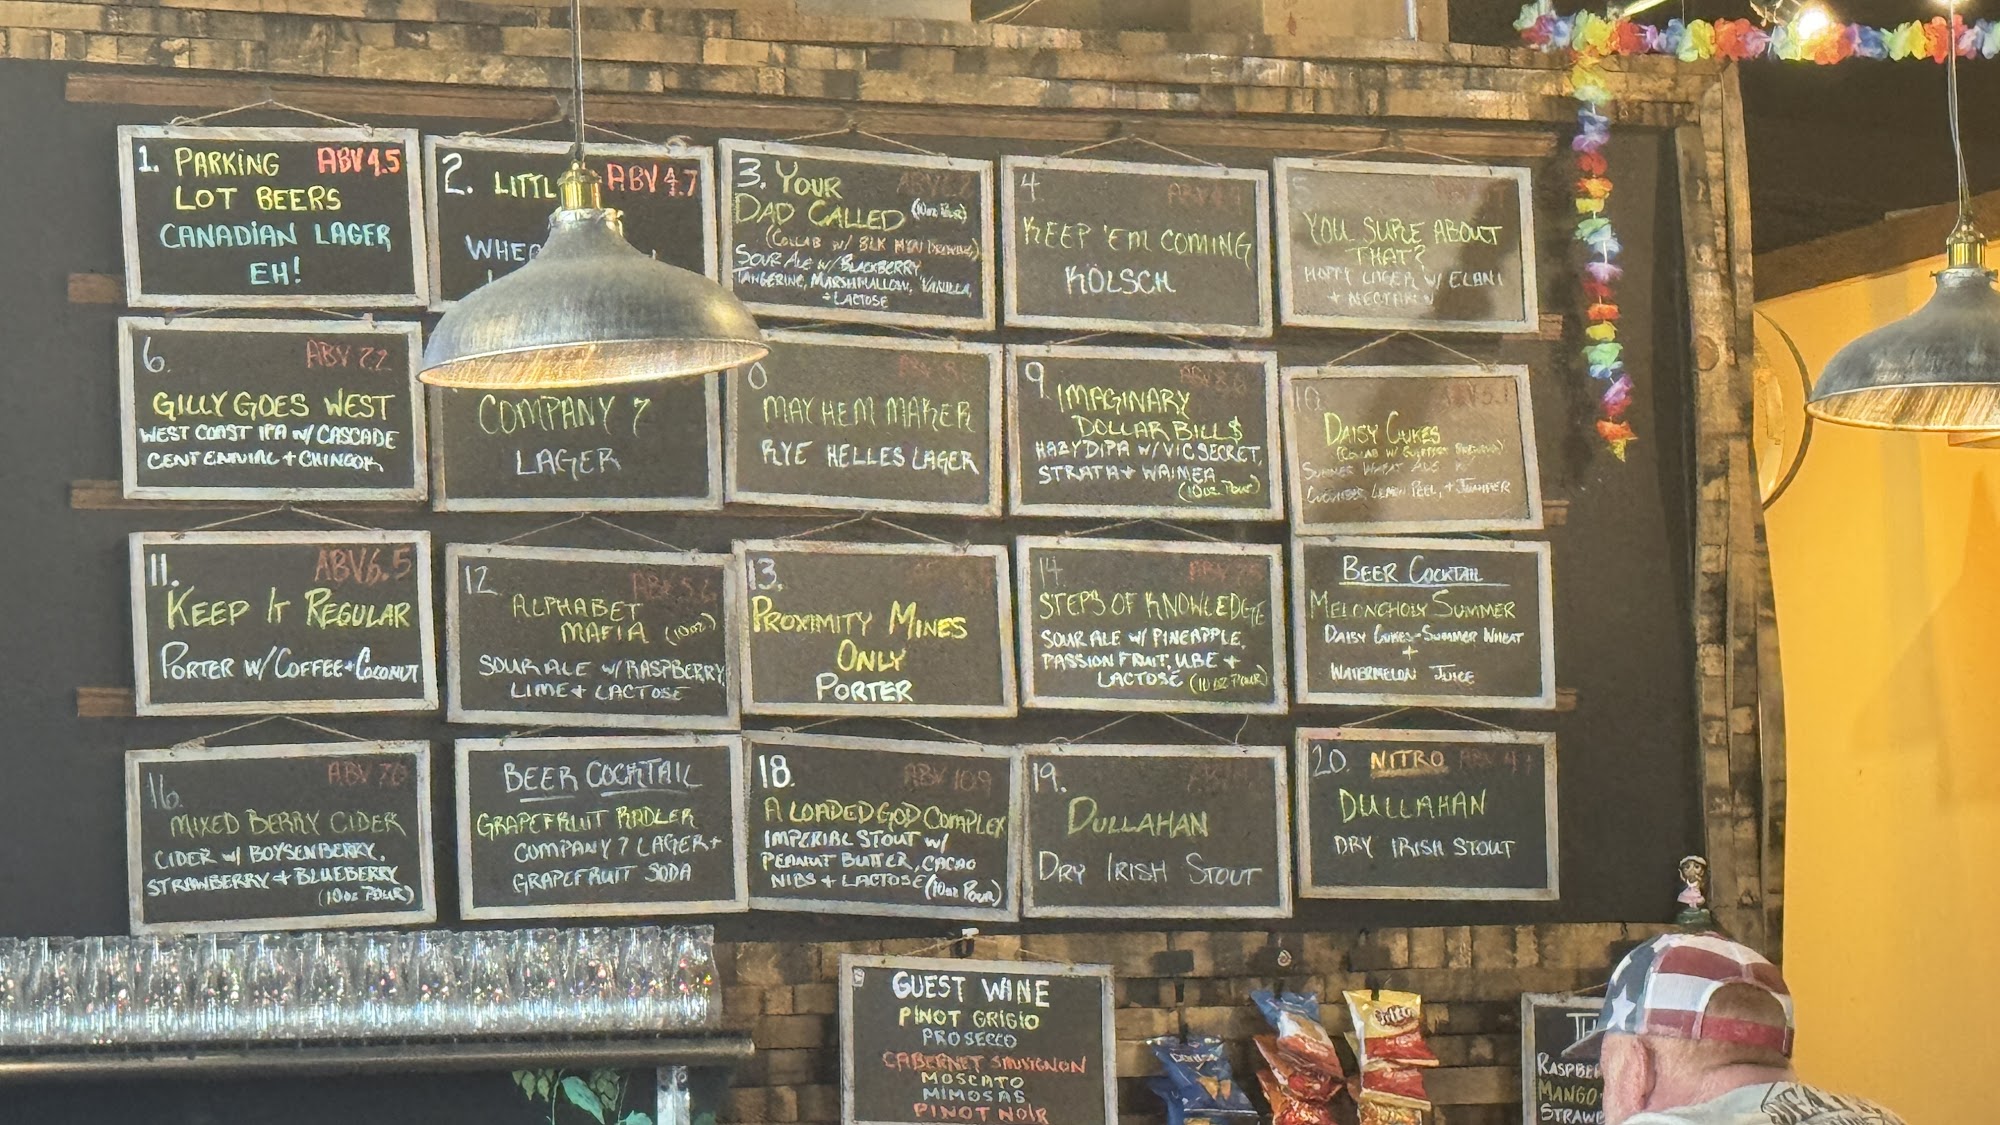 1. PARKING ABV 4.5
LOT BEERS
CANADIAN LAGER
EH!
2. ABV 4.7
3. YOUR
DAD CALLED (10oz POUR)
(COLLAB W/ BLK MTN BREWING)
SOUR ALE W/ BLACKBERRY,
TANGERINE, MARSHMALLOW, VANILLA,
+ LACTOSE
4
KEEP 'EM COMING
KÖLSCH
5
YOU SURE ABOUT
THAT?
HOPPY LAGER W/ ELANI
+ NECTARON
6. ABV 7.2
GILLY GOES WEST
WEST COAST IPA W/ CASCADE
CENTENNIAL + CHINOOK
COMPANY 7
LAGER
8
MAYHEM MAKER
RYE HELLES LAGER
9. ABV 8.0
IMAGINARY
DOLLAR BILL$
HAZY DIPA W/ VIC SECRET,
STRATA + WAIMEA
(10oz POUR)
10.
DAISY CUKES
SUMMER WHEAT ALE W/
CUCUMBER, LEMON PEEL, + JUNIPER
11. ABV 6.5
KEEP IT REGULAR
PORTER W/ COFFEE + COCONUT
12
ALPHABET
MAFIA (10oz)
SOUR ALE W/ RASPBERRY,
LIME + LACTOSE
13.
PROXIMITY MINES
ONLY
PORTER
14.
STEPS OF KNOWLEDGE
SOUR ALE W/ PINEAPPLE,
PASSION FRUIT, UBE +
LACTOSE (10 OZ POUR)
BEER COCKTAIL
MELONCHOLY SUMMER
DAISY CUKES-SUMMER WHEAT
+
WATERMELON JUICE
16. ABV 7.0
MIXED BERRY CIDER
CIDER W/ BOYSENBERRY,
STRAWBERRY + BLUEBERRY
(10oz POUR)
BEER COCKTAIL
GRAPEFRUIT RADLER
COMPANY 7 LAGER +
GRAPEFRUIT SODA
18. ABV 10.9
A LOADED GOD COMPLEX
IMPERIAL STOUT W/
PEANUT BUTTER, CACAO
NIBS + LACTOSE (10oz POUR)
19.
DULLAHAN
DRY IRISH STOUT
20. NITRO ABV 4.7
DULLAHAN
DRY IRISH STOUT
GUEST WINE
PINOT GRIGIO
PROSECCO
CABERNET SAUVIGNON
MOSCATO
MIMOSAS
PINOT NOIR
MANGO